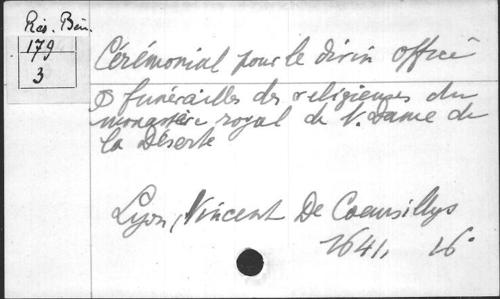 Rés. Bén.
179
3
Cérémonial pour le divin office
& funérailles des religieuses du
monastère royal de N. Dame de
la Déserte
Lyon, Vincent De Coeursillys
1641, 16°